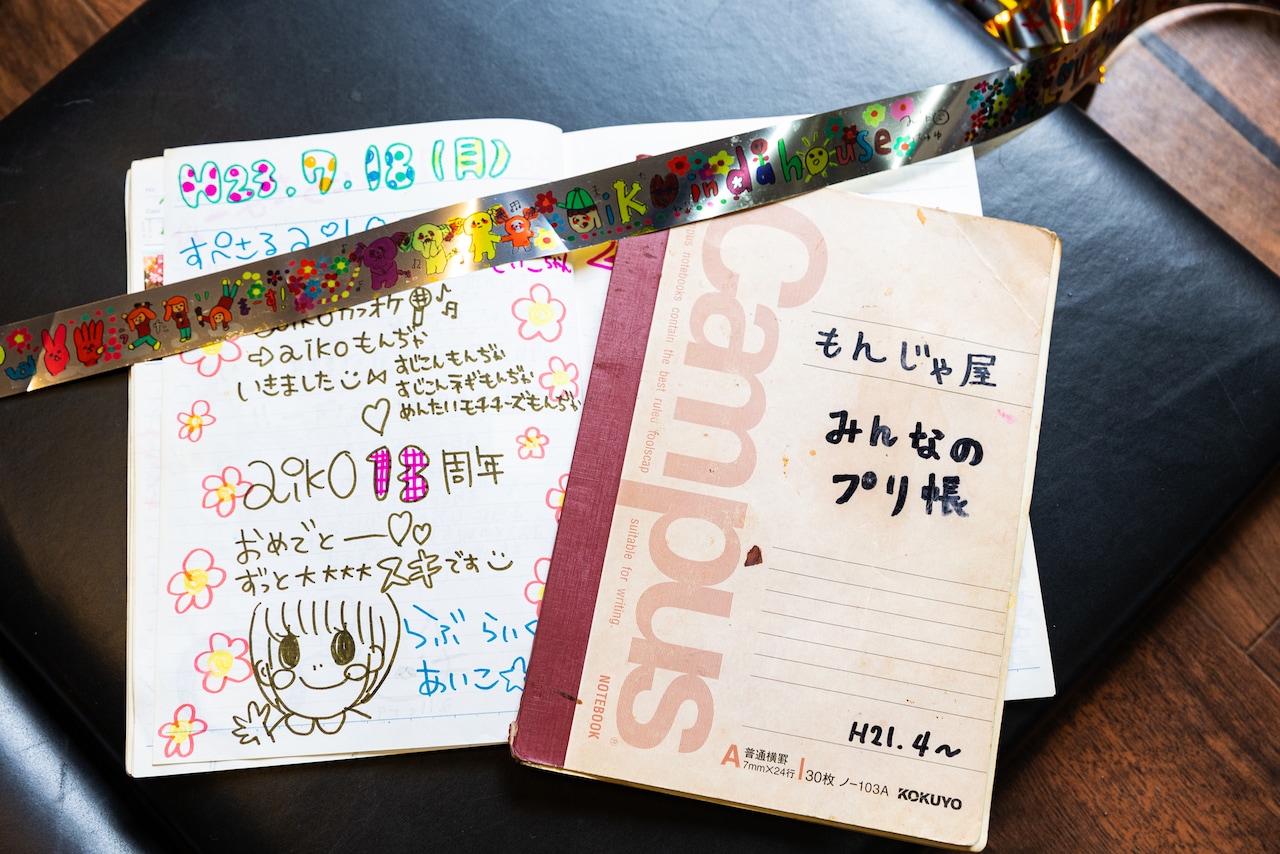 H23.7.18(月)
すぺさる
aiko in da house
カラオケ
⇨aikoもんぢゃ
いきました
すじこんもんぢゃ
すじこんネギもんぢゃ
めんたいモチチーズもんぢゃ
aiko 13周年
おめでとー♡♡
ずっと大大大大スキです
らぶ らいく
あいこ☆
Campus
Campus notebooks contain the best ruled foolscap
suitable for writing.
NOTEBOOK
もんじゃ屋
みんなの
プリ帳
H21.4~
A 普通横罫
7mm×24行
30枚 ノ-103A KOKUYO